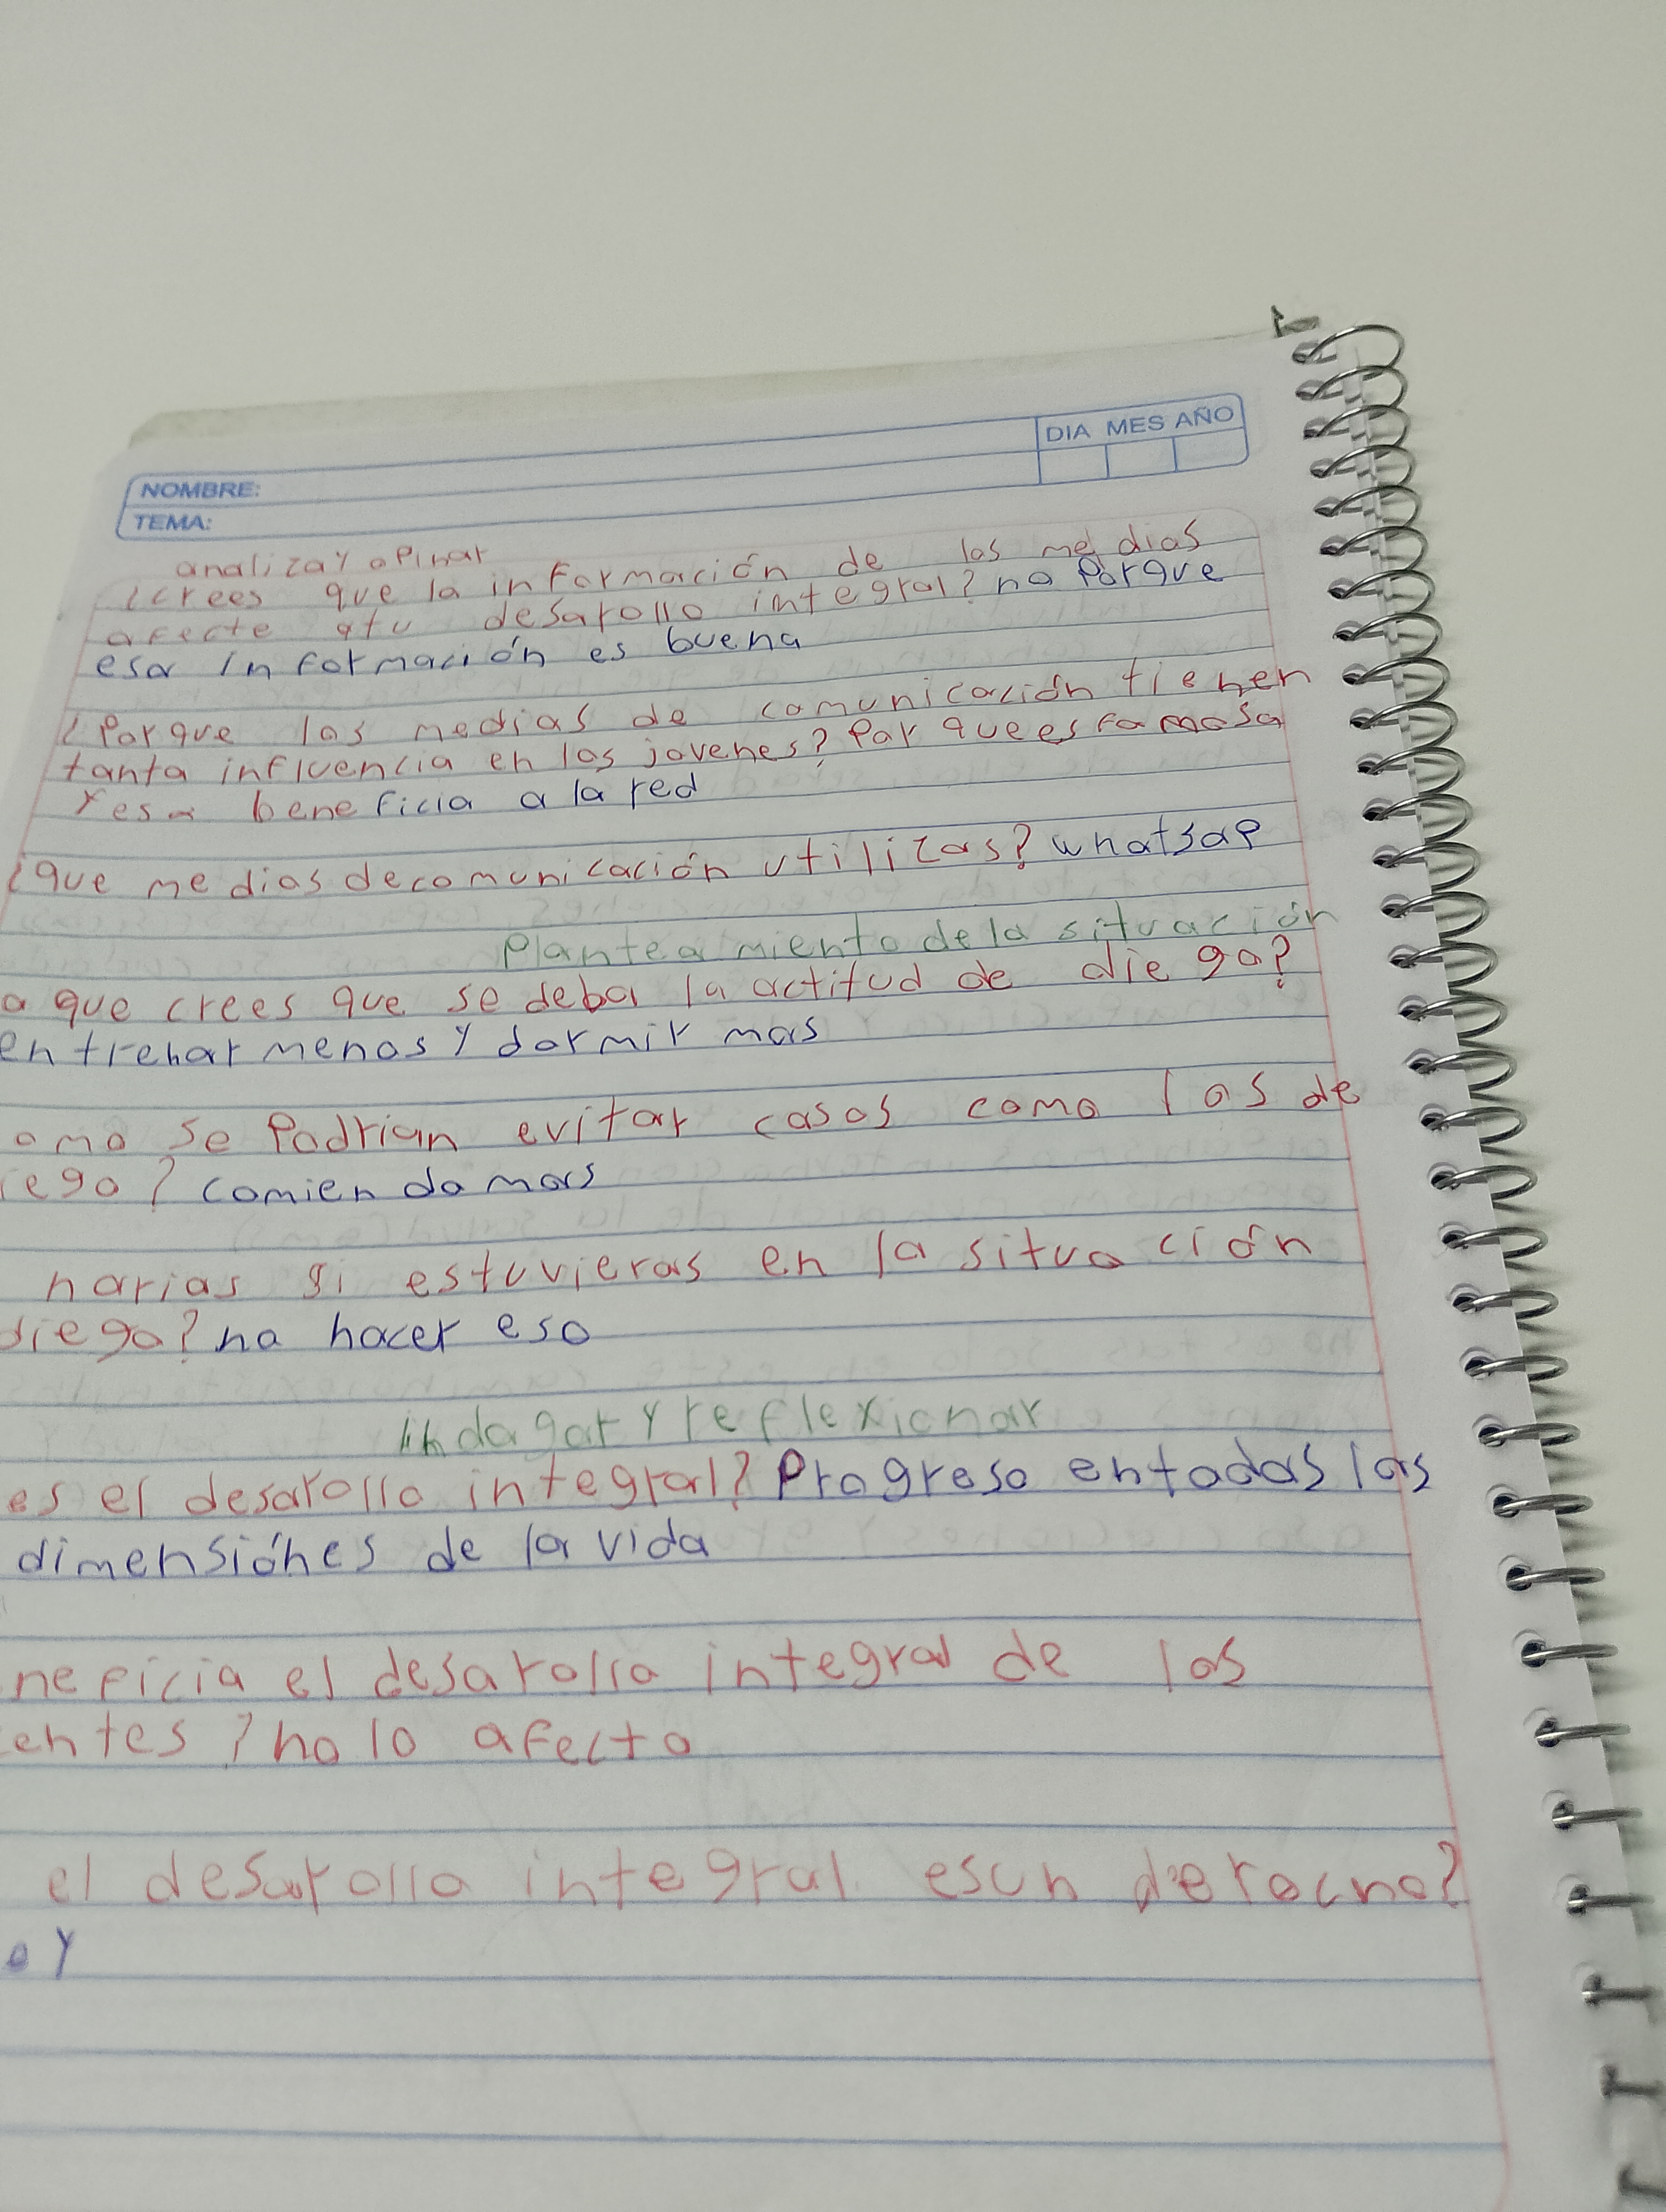 DIA MES AÑO
NOMBRE:
TEMA:
analizay opinar
¿crees que la información de los medios
afecte atu desarollo integral? no porque
esa información es buena
¿Porque los medios de comunicación tienen
tanta influencia en los jovenes? Por que es famosa
yesa beneficia a la red
¿que medios decomunicación utilizas? whatsap
Planteamiento de la situación
a que crees que se deba la actitud de diego?
entrenar menos y dormir mas
omo se Podrian evitar casos como los de
iego? comiendo mas
harias si estuvieras en la situación
diego? no hacer eso
indagar y reflexionar
es el desarollo integral? Progreso entodas las
dimensiónes de la vida
neficia el desarollo integral de los
entes? no lo afecta
el desarollo integral esun derecho?
oy